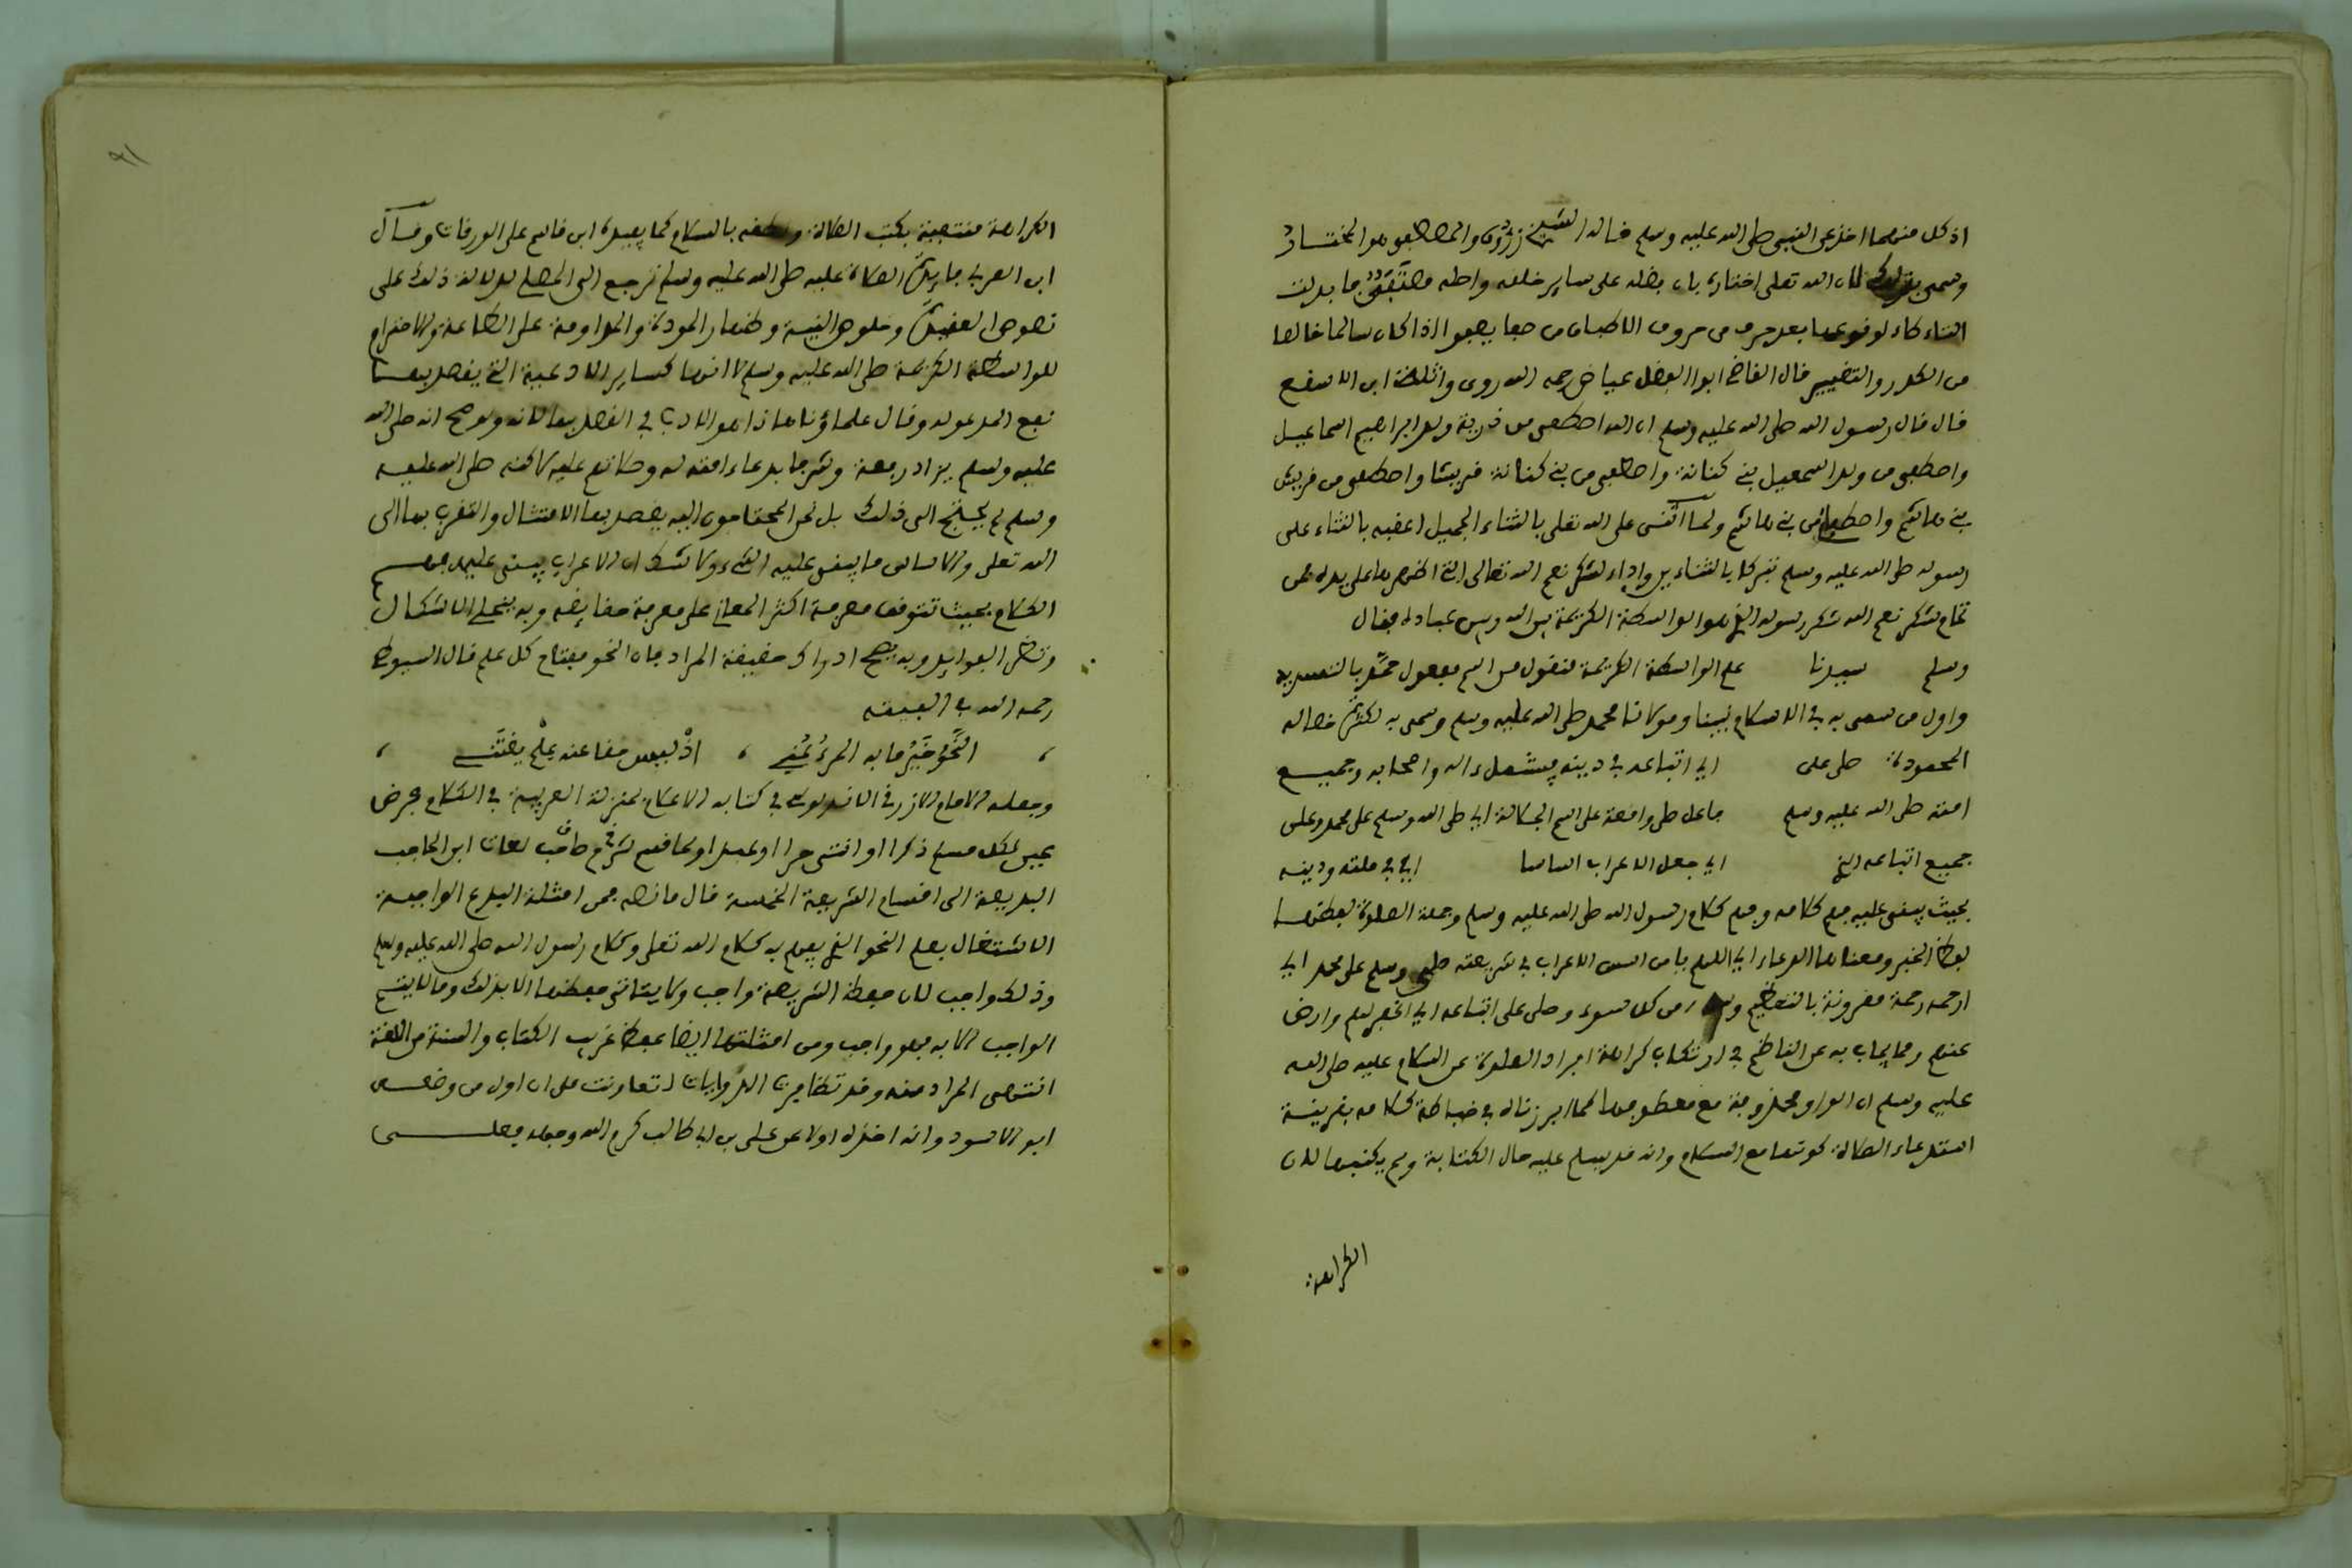 اذ كل منهما اخذ عن النبي صلى الله عليه وسلم قاله الشيخ زروق والمصطفى هو المختار
وسمي بذلك لان الله تعلى اختاره بان فضله على ساير خلقه واصله مصتفى فابدلت
التاء طاء لوقوعها بعد حرف من حروف الاطباق من صفا يصفوا اذا كان سالما خالصا
من الكدر والتغيير قال القاضي ابوا الفضل عياض رحمه الله روى واثلة ابن الاسقع
قال قال رسول الله صلى الله عليه وسلم ان الله اصطفى من ذرية ولد ابراهيم اسماعيل
واصطفى من ولد اسمعيل بني كنانة واصطفى من بني كنانة قريشا واصطفى من قريش
بني هاشم واصطفاني من بني هاشم ولما اثنى على الله تعلى بالثناء الجميل اعقبه بالثناء على
رسوله صلى الله عليه وسلم تبركا بالثناءين واداء لشكر نعم الله تعالى التي اظهرها على يده فمن
تمام شكر نعم الله شكر رسوله الذي هو الواسطة الكريمة بين الله وبين عباده فقال
وسلم سيدنا علم الواسطة الكريمة منقول من اسم مفعول حمّد بالتشديد
واول من سمي به في الاسلام نبينا ومولانا محمد صلى الله عليه وسلم وسمي به لكثرة خصاله
المحمودة صلى على اي اتباعه في دينه فيشمل ءاله واصحابه وجميع
امته صلى الله عليه وسلم فاعل صلى واقعة على اسم الجلالة اي صلى الله وسلم على محمد وعلى
جميع اتباعه الذي اي جعل الاعراب اساسا اي في ملته ودينه
بحيث يبنى عليه فهم كلامه وفهم كلام رسول الله صلى الله عليه وسلم وجملة الصلوة لفظها
لفظ الخبر ومعناها الدعاء اي اللهم يا من اسس الاعراب في شريعته صلى وسلم على محمد اي
ارحمه رحمة مقرونة بالتعظيم من كل سوء وصلى على اتباعه اي اغفر لهم وارض
عنهم ومما يجاب به عن الناظم في ارتكاب كراهة افراد الصلوة عن السلام عليه صلى الله
عليه وسلم ان الواو محذوفة مع معطوفها كما ابرزناه في ضباطة كلامه بقرينة
استدعاء الصلاة كونها مع السلام وانه قد يسلم عليه حال الكتابة ولم يكتبها لان
الكراهة
٩١
الكراهة منتفية بكتب الصلاة ولفظه بالسلام كما يفيده ابن قاسم على الورقات وقال
ابن العربي فايدة الصلاة عليه صلى الله عليه وسلم ترجع الى المصلي لدلالة ذلك على
نصوح العقيدة وخلوص النية واظهار المودة والمداومة على الطاعة والاحترام
للواسطة الكريمة صلى الله عليه وسلم لا انها كساير الادعية التي يقصد بها
نفع المدعو له وقال علماؤنا هذا هو الادب في القصد بها لانه ولو صح انه صلى الله
عليه وسلم يزاد رفعة وشرفا بدعاء امته له وصلاتهم عليه لاكنه صلى الله عليه
وسلم لم يحتج الى ذلك بل نحن المحتاجون اليه يقصد بها الامتثال والتقرب بها الى
الله تعلى والاساس ما يبنى عليه الشيء ولا شك ان الاعراب يبنى عليه فهم
الكلام بحيث تتوقف معرفة اكثر المعاني على معرفة حقايقه وبه ينجلي الاشكال
وتظهر الفوايد وبه يصح ادراك حقيقة المراد فان النحو مفتاح كل علم قال السيوطي
رحمه الله في الفيته
، النحوُ خيرُ ما به المرءُ عُنِي ، اذْ ليس حقا عنه علْم يغتَنى ،
وجعله الامام الازرق الاندلسي في كتابه الاعلام بمنزلة العربية في الكلام فرض
عين لكل مسلم ذكرا او انثى حرا او عبدا
البديعة الى اقسام الشريعة الخمسة قال ما نصه فمن امثلة البدع الواجبة
الاشتغال بعلم النحو الذي يفهم به كلام الله تعلى وكلام رسول الله صلى الله عليه وسلم
وذلك واجب لان حفظ الشريعة واجب ولا يتاتى حفظها الا بذلك وما لا يتم
الواجب الا به فهو واجب ومن امثلتها ايضا حفظ غريب الكتاب والسنة من اللغة
انتهى المراد منه وقد تظافرت الروايات اتعاونت على ان اول من وضعه
ابو الاسود وانه اخذه اولا عن علي بن ابي طالب كرم الله وجهه